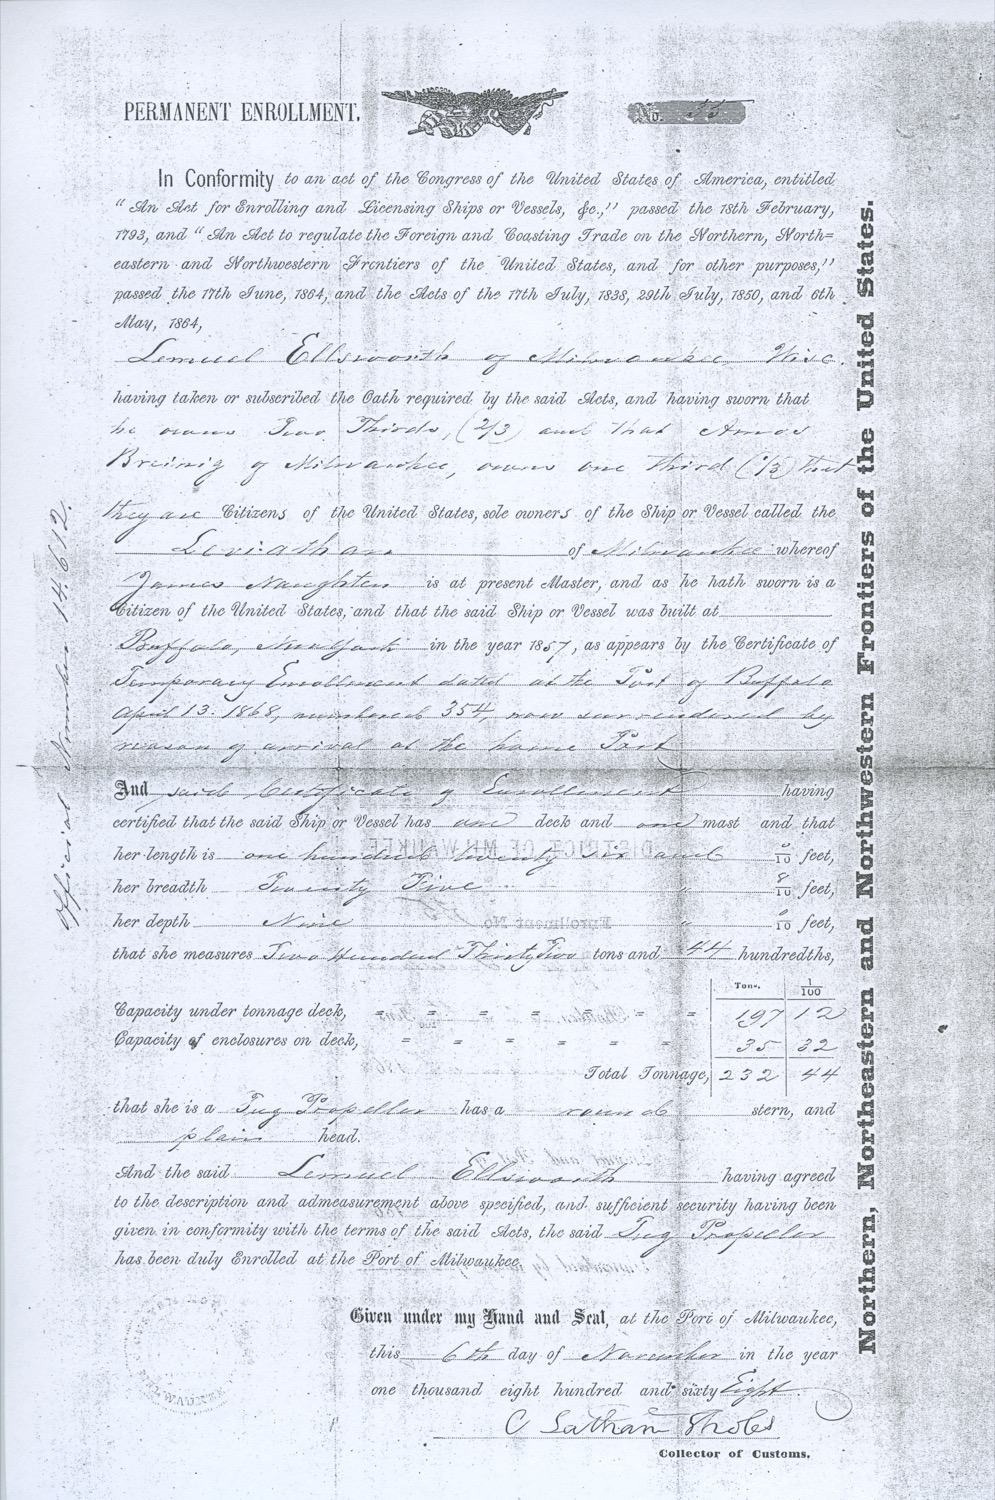 PERMANENT ENROLLMENT.
No. 55
In Conformity to an act of the Congress of the United States of America, entitled
"An Act for Enrolling and Licensing Ships or Vessels, &c.," passed the 18th February,
1793, and "An Act to regulate the Foreign and Coasting Trade on the Northern, North=
eastern and Northwestern Frontiers of the United States, and for other purposes,"
passed the 17th June, 1864, and the Acts of the 17th July, 1838, 29th July, 1850, and 6th
May, 1864,
Lemuel Ellsworth of Milwaukee Wisc.
having taken or subscribed the Oath required by the said Acts, and having sworn that
he owns Two Thirds, (2/3) and that Amos
Breinig of Milwaukee, owns one third (1/3) that
they are Citizens of the United States, sole owners of the Ship or Vessel called the
Leviathan of Milwaukee whereof
James Naughten is at present Master, and as he hath sworn is a
Citizen of the United States, and that the said Ship or Vessel was built at
Buffalo, New York in the year 1857, as appears by the Certificate of
Temporary Enrollment dated at the Port of Buffalo
April 13. 1868, numbered 354, now surrendered by
reason of arrival at the home Port
And said Certificate of Enrollment having
certified that the said Ship or Vessel has one deck and one mast and that
her length is one hundred twenty six and 0/10 feet,
her breadth Twenty Five " 8/10 feet,
her depth Nine " 0/10 feet,
that she measures Two Hundred Thirty Two tons and 44 hundredths,
Tons. 1/100
Capacity under tonnage deck, = = = = = = = 197 12
Capacity of enclosures on deck, = = = = = = 35 32
Total Tonnage, 232 44
that she is a Tug Propeller has a round stern, and
plain head.
And the said Lemuel Ellsworth having agreed
to the description and admeasurement above specified, and sufficient security having been
given in conformity with the terms of the said Acts, the said Tug Propeller
has been duly Enrolled at the Port of Milwaukee.
Given under my Hand and Seal, at the Port of Milwaukee,
this 6th day of November in the year
one thousand eight hundred and sixty Eight.
C Latham Sholes
Collector of Customs.
Official Number 14.612.
Northern, Northeastern and Northwestern Frontiers of the United States.
DISTRICT OF MILWAUKEE
Enrollment No.